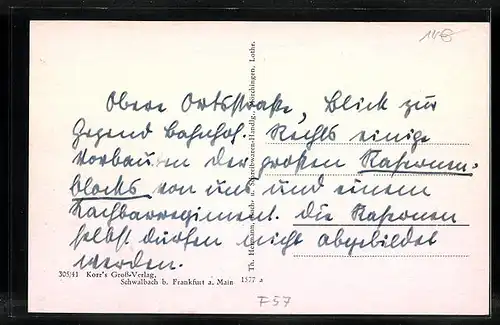 11€
Obere Ortsstraße, Blick zur
Gegend Bahnhof. Rechts einige
Vorbauten der großen Kasernen-
blocks von uns und einem
Nachbarregiment. Die Kasernen
selbst dürfen nicht abgebildet
werden.
Th. Hermann, Buch- u. Schreibwaren-Handlg., Bitschingen, Lothr.
305/41 Korr's Groß-Verlag,
Schwalbach b. Frankfurt a. Main 1577 a
F57